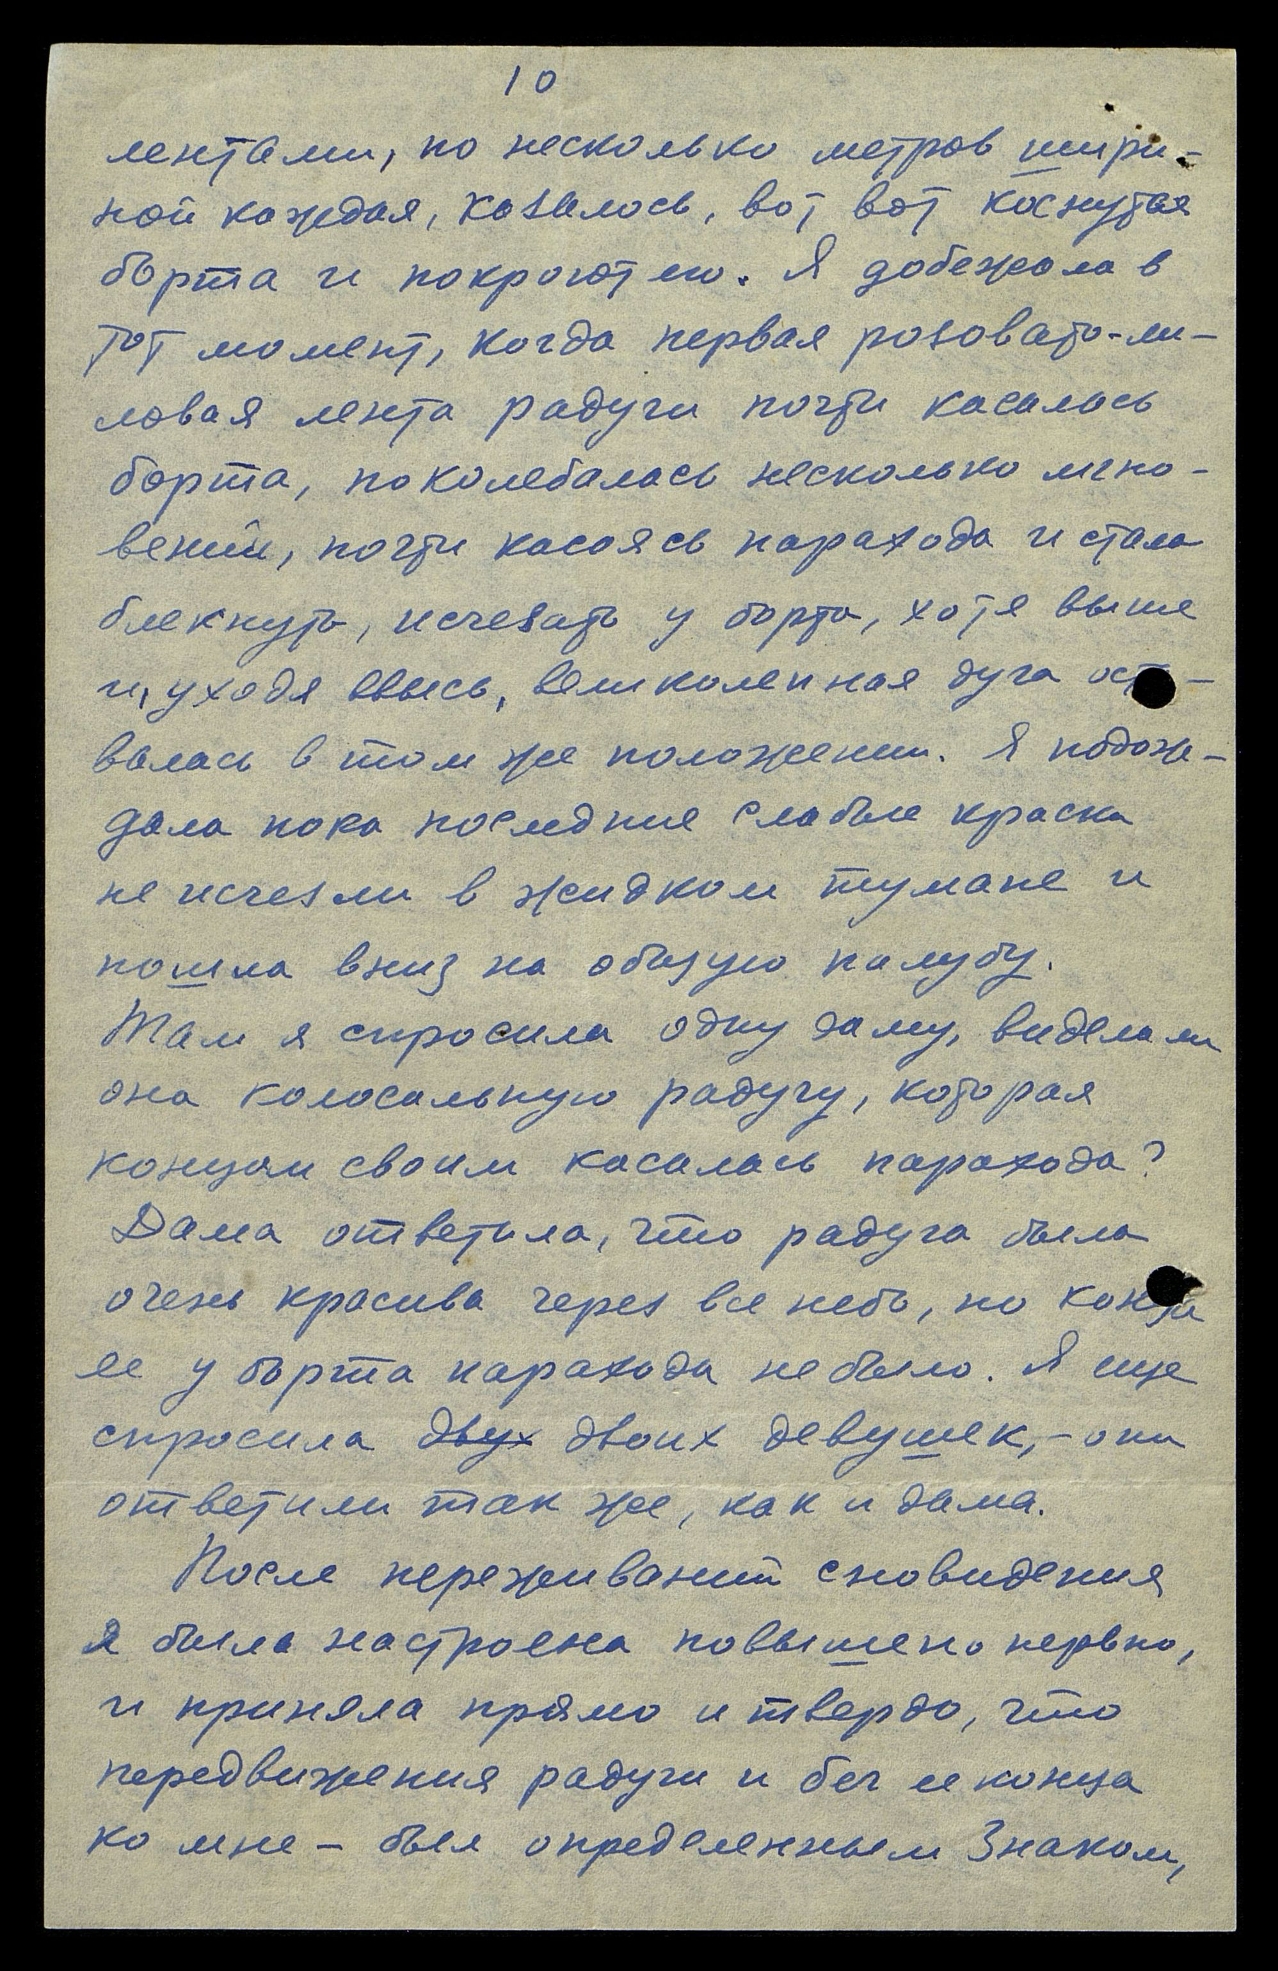 10
лентами, по несколько метров шири-
ной каждая, казалось, вот вот коснутся
борта и покроют его. Я добежала в
тот момент, когда первая розовато-ли-
ловая лента радуги почти касалась
борта, поколебалась несколько мгно-
вений, почти касаясь парахода и стала
блекнуть, исчезать у борта, хотя выше
и, уходя ввысь, великолепная дуга оста-
валась в том же положении. Я подож-
дала пока последние слабые краски
не исчезли в жидком тумане и
пошла вниз на общую палубу.
Там я спросила одну даму, видела ли
она колосальную радугу, которая
концом своим касалась парахода?
Дама ответила, что радуга была
очень красива через все небо, но конца
ее у борта парахода не было. Я еще
спросила двух двоих девушек, - они
ответили так же, как и дама.
После переживаний сновидения
я была настроена повышено нервно,
и приняла прямо и твердо, что
передвижения радуги и бег ее конца
ко мне - был определенным Знаком,